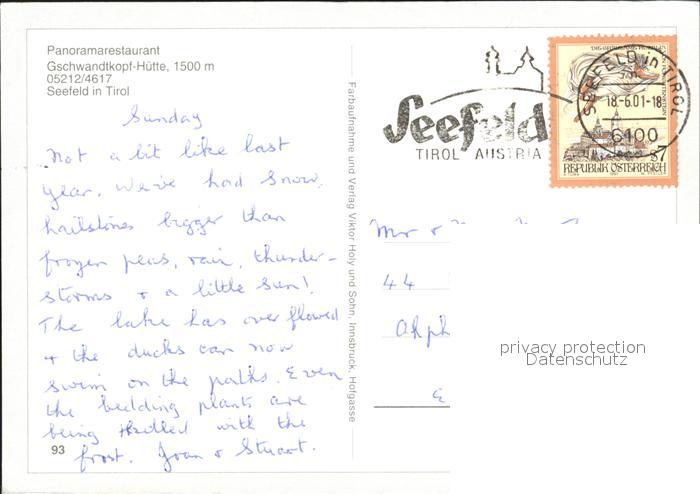 Panoramarestaurant
Gschwandtkopf-Hütte, 1500 m
05212/4617
Seefeld in Tirol
Sunday
Not a bit like last
year. We've had snow,
hailstones bigger than
frozen peas, rain, thunder-
storms + a little sun!
The lake has overflowed
+ the ducks can now
swim on the paths. Even
the bedding plants are
being killed with the
frost. Joan + Stuart.
93
Farbaufnahme und Verlag Viktor Holy und Sohn, Innsbruck, Hofgasse
Seefeld
TIROL AUSTRIA
SEEFELD in TIROL
18.-6.01-18
6100
S7
REPUBLIK ÖSTERREICH
Mr &
44
privacy protection
Datenschutz